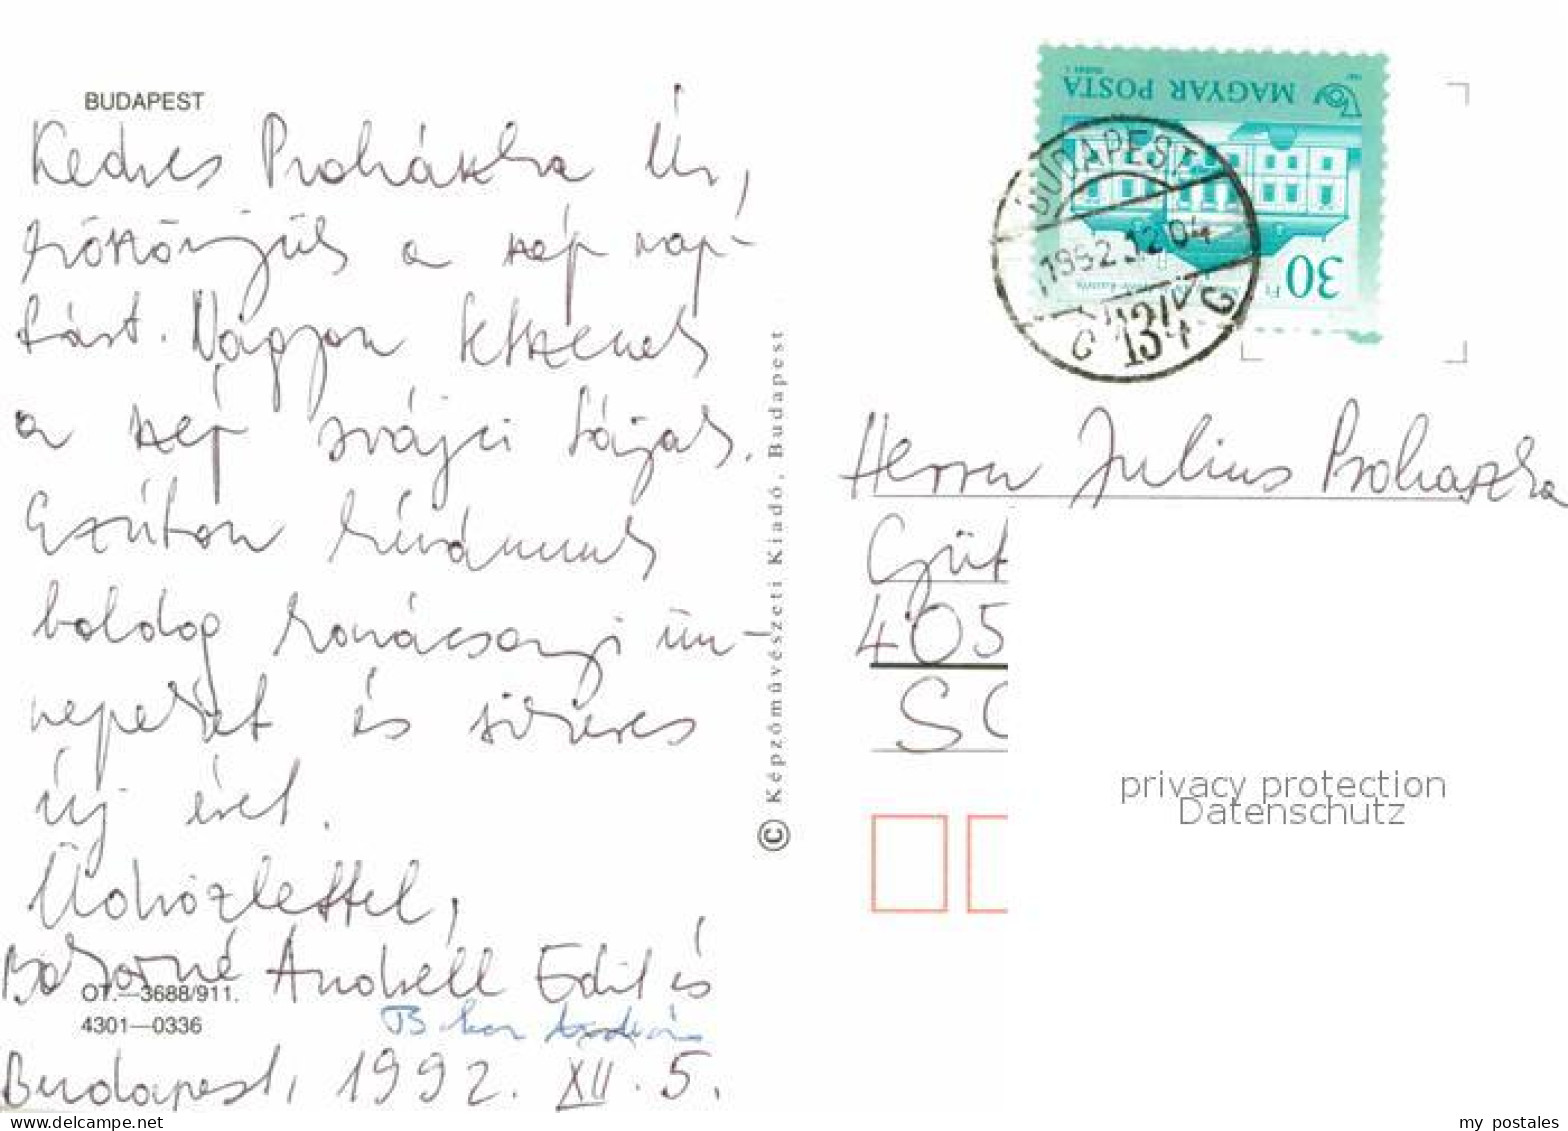 BUDAPEST
Kedves Prohászka Úr,
köszönjük a szép nap-
tárt. Nagyon tetszenek
a szép svájci tájak.
Ezúton kívánunk
boldog karácsonyi ün-
nepeket és sikeres
új évet.
Üdvözlettel,
Bokorné Andrékk Edit és
OT.—3688/911.
4301—0336
Bokor András
Budapest, 1992. XII. 5.
© Képzőművészeti Kiadó, Budapest
MAGYAR POSTA
30 Ft
BUDAPEST
1992.12.04
134
Herrn Julius Prohaszka
Güt
405
SC
privacy protection
Datenschutz
www.delcampe.net
my_postales